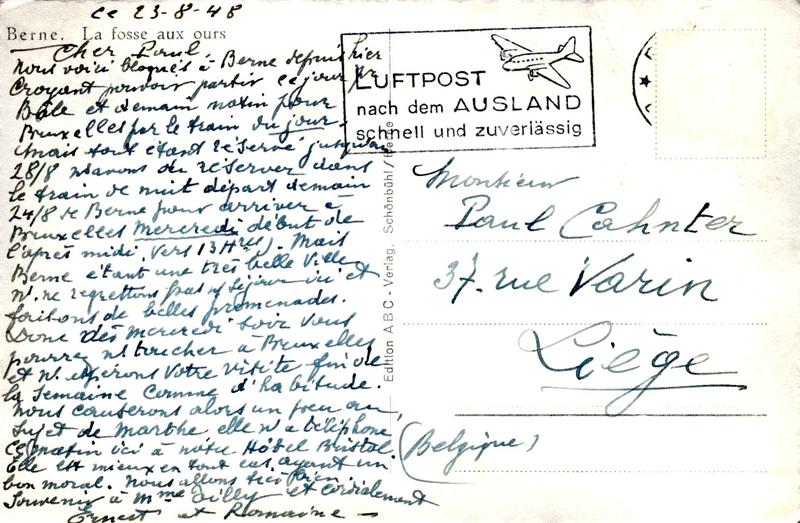 ce 23-8-48
Berne. La fosse aux ours
Cher Paul.
Nous voici bloqués à Berne depuis hier
Croyant pouvoir partir ce jour pr
Bâle et demain matin pour
Bruxelles par le train du jour -
Mais tout étant réservé jusqu'au
28/8 ns avons du réserver dans
le train de nuit départ demain
24/8 de Berne pour arriver à
Bruxelles Mercredi début de
l'après midi. Vers 13 Hres). Mais
Berne étant une très belle Ville
N. ne regrettons pas n/ séjour ici et
faisons de belles promenades.
Donc dès Mercredi soir Vous
pourrez nt toucher à Bruxelles
et N. espérons Votre visite fin de
la semaine comme d'habitude.
Nous causerons alors un peu au
sujet de Marthe elle n/ a téléphoné
ce matin ici à notre Hôtel Bristol.
Elle est mieux en tout cas, ayant un
bon moral. Nous allons très bien
Souvenir à Mme Tilly et cordialement
Ernest et Romaine -
LUFTPOST
nach dem AUSLAND
schnell und zuverlässig
Edition ABC - Verlag, Schönbühl/Berne
Monsieur
Paul Cahnter
37. rue Varin
Liège
(Belgique)